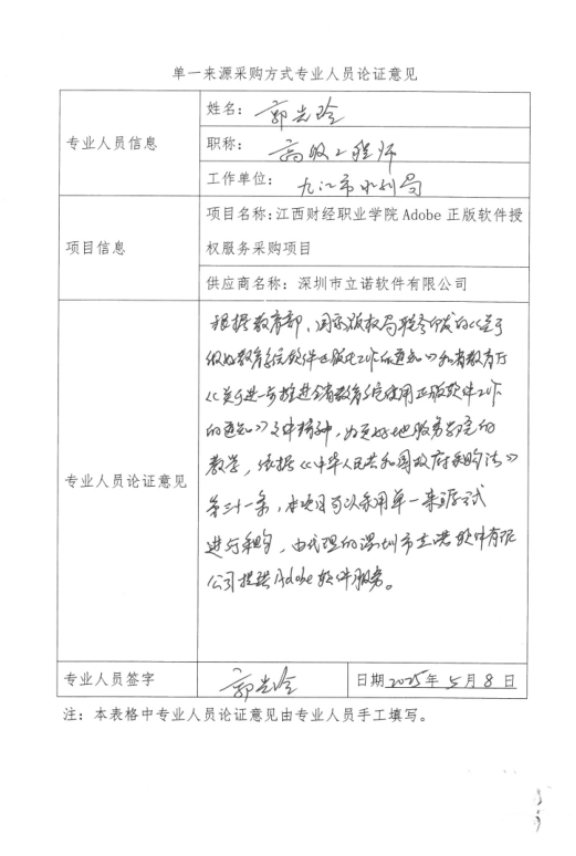 单一来源采购方式专业人员论证意见
专业人员信息
姓名：郭光玲
职称：高级工程师
工作单位：九江市水利局
项目信息
项目名称：江西财经职业学院Adobe正版软件授
权服务采购项目
供应商名称：深圳市立诺软件有限公司
专业人员论证意见
根据教育部、国家版权局联合印发的《关于
做好教育系统软件正版化工作的通知》和省教育厅
《关于进一步推进全省教育系统使用正版软件工作
的通知》文件精神，为更好地服务学院的
教学，依据《中华人民共和国政府采购法》
第三十一条，本项目可以采用单一来源方式
进行采购，由代理的深圳市立诺软件有限
公司提供Adobe软件服务。
专业人员签字
郭光玲
日期2025年5月8日
注：本表格中专业人员论证意见由专业人员手工填写。